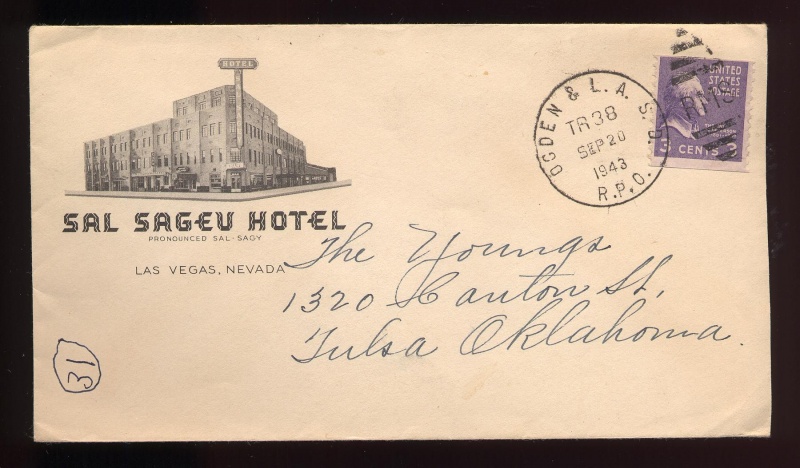 HOTEL
SAL SAGEV HOTEL
PRONOUNCED SAL-SAGY
LAS VEGAS, NEVADA
OGDEN & L. A. S. D.
TR 38
SEP 20
1943
R.P.O.
UNITED
STATES
POSTAGE
3 CENTS 3
The Youngs
1320 Canton St,
Tulsa Oklahoma.
31